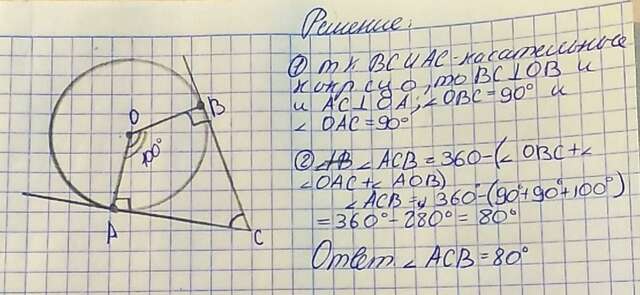 Решение:
① т.к BC и AC - касательные
к окр с ц О, то BC ⊥ OB и
и AC ⊥ OA, ∠OBC = 90° и
∠OAC = 90°
② ∠ACB = 360 - (∠OBC + ∠
∠OAC + ∠AOB)
∠ACB = 360° - (90° + 90° + 100°)
= 360° - 280° = 80°
Ответ ∠ACB = 80°
O
B
100°
A
C